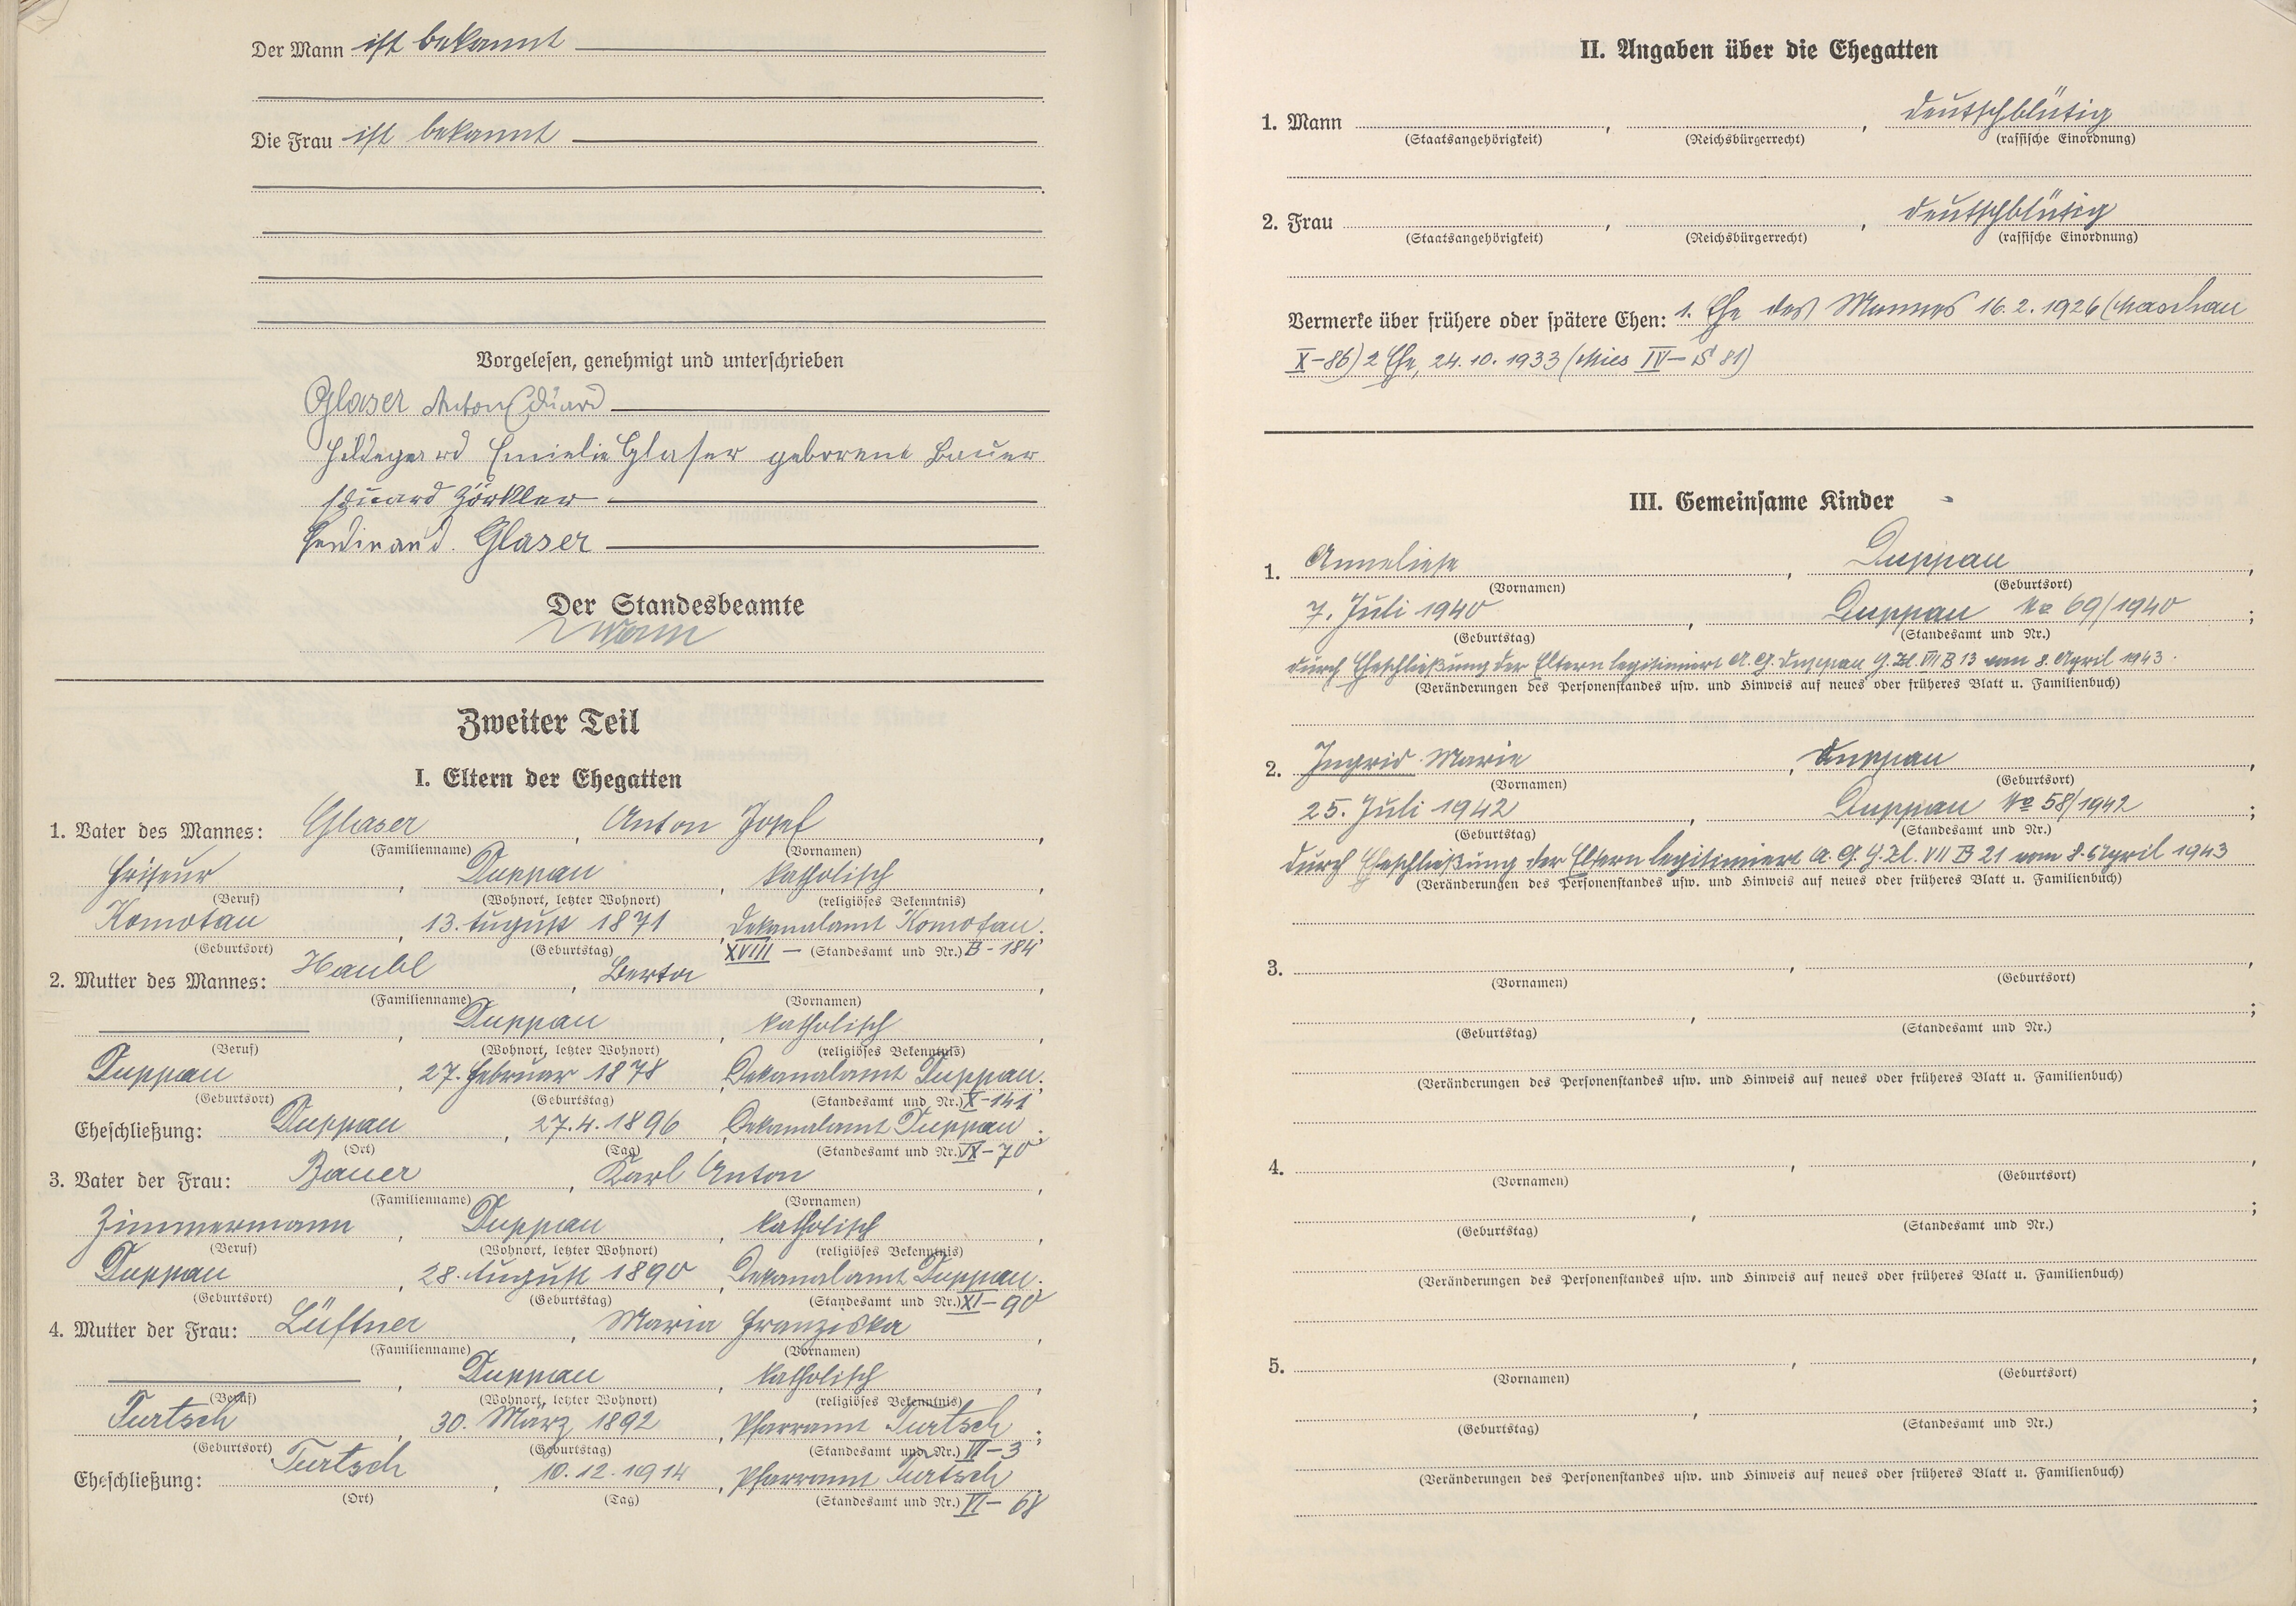 Der Mann ist bekannt
Die Frau ist bekannt
Vorgelesen, genehmigt und unterschrieben
Glaser Anton Eduard
Hildegard Emielie Glaser geborene Bauer
Eduard
Ferdinand. Glaser
Der Standesbeamte
Zweiter Teil
I. Eltern der Ehegatten
1. Vater des Mannes: Glaser, Anton Josef,
(Familienname) (Vornamen)
Friseur, Duppau, katholisch,
(Beruf) (Wohnort, letzter Wohnort) (religiöses Bekenntnis)
Komotau, 13. August 1871, Dekanalamt Komotau.
(Geburtsort) (Geburtstag) XVIII — (Standesamt und Nr.) B - 184;
2. Mutter des Mannes: Haubl, Berta,
(Familienname) (Vornamen)
, Duppau, katholisch,
(Beruf) (Wohnort, letzter Wohnort) (religiöses Bekenntnis)
Duppau, 27. Februar 1878, Dekanalamt Duppau.
(Geburtsort) (Geburtstag) (Standesamt und Nr.) X-141;
Eheschließung: Duppau, 27.4.1896, Dekanalamt Duppau.
(Ort) (Tag) (Standesamt und Nr.) IX-70;
3. Vater der Frau: Bauer, Karl Anton,
(Familienname) (Vornamen)
Zimmermann, Duppau, katholisch,
(Beruf) (Wohnort, letzter Wohnort) (religiöses Bekenntnis)
Duppau, 28. August 1890, Dekanalamt Duppau.
(Geburtsort) (Geburtstag) (Standesamt und Nr.) XI-90;
4. Mutter der Frau: Lüftner, Maria Franziska,
(Familienname) (Vornamen)
, Duppau, katholisch,
(Beruf) (Wohnort, letzter Wohnort) (religiöses Bekenntnis)
Turtsch, 30. März 1892, Pfarramt Turtsch;
(Geburtsort) (Geburtstag) (Standesamt und Nr.) VI-3
Eheschließung: Turtsch, 10.12.1914, Pfarramt Turtsch
(Ort) (Tag) (Standesamt und Nr.) VI-68
II. Angaben über die Ehegatten
1. Mann , , deutschblütig
(Staatsangehörigkeit) (Reichsbürgerrecht) (rassische Einordnung)
2. Frau , , deutschblütig
(Staatsangehörigkeit) (Reichsbürgerrecht) (rassische Einordnung)
Vermerke über frühere oder spätere Ehen: 1. Ehe des Mannes 16.2.1926 (Maschau
X-86) 2 Ehe, 24.10.1933 (Mies IV-S 81)
III. Gemeinsame Kinder
1. Anneliese, Duppau,
(Vornamen) (Geburtsort)
7. Juli 1940, Duppau No 69/1940;
(Geburtstag) (Standesamt und Nr.)
durch Eheschließung der Eltern legitimiert A.G. Duppau G.Zl. VII B 13 vom 8. April 1943.
(Veränderungen des Personenstandes usw. und Hinweis auf neues oder früheres Blatt u. Familienbuch)
2. Ingrid Marie, Duppau,
(Vornamen) (Geburtsort)
25. Juli 1942, Duppau No 58/1942;
(Geburtstag) (Standesamt und Nr.)
durch Eheschließung der Eltern legitimiert A.G. G.Zl. VII B 21 vom 8. April 1943
(Veränderungen des Personenstandes usw. und Hinweis auf neues oder früheres Blatt u. Familienbuch)
3. , ,
(Vornamen) (Geburtsort)
, ;
(Geburtstag) (Standesamt und Nr.)
(Veränderungen des Personenstandes usw. und Hinweis auf neues oder früheres Blatt u. Familienbuch)
4. , ,
(Vornamen) (Geburtsort)
, ;
(Geburtstag) (Standesamt und Nr.)
(Veränderungen des Personenstandes usw. und Hinweis auf neues oder früheres Blatt u. Familienbuch)
5. , ,
(Vornamen) (Geburtsort)
, ;
(Geburtstag) (Standesamt und Nr.)
(Veränderungen des Personenstandes usw. und Hinweis auf neues oder früheres Blatt u. Familienbuch)